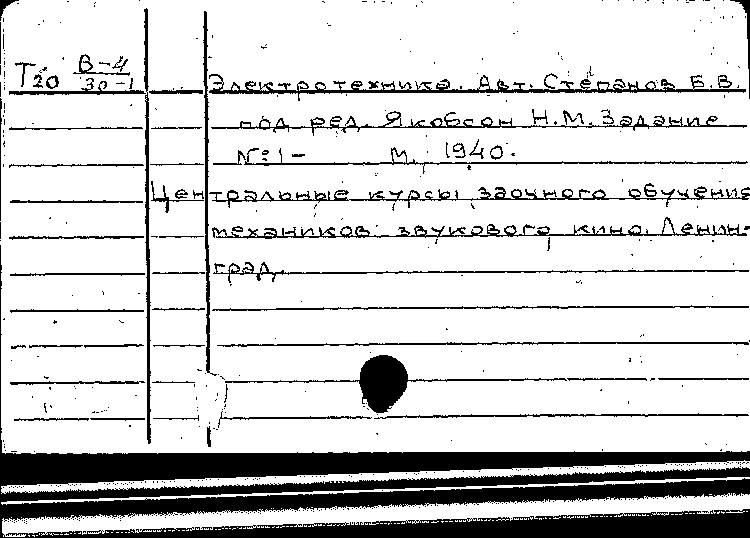 Т20 В-4
30-1
Электротехника. Авт. Степанов Б.В.
под ред. Якобсон Н.М. Задание
№1- М., 1940.
Центральные курсы заочного обучения
механиков звукового кино. Ленин-
град.